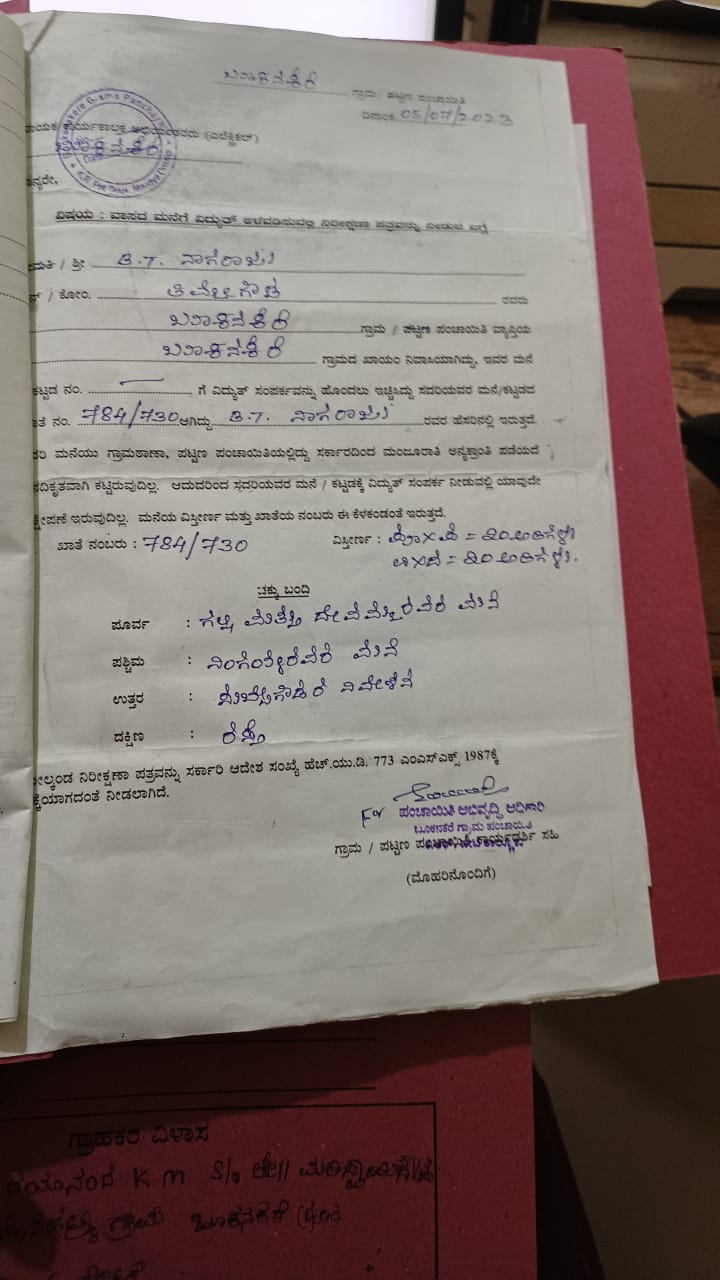 ಬೂಕನಕೆರೆ ಗ್ರಾಮ / ಪಟ್ಟಣ ಪಂಚಾಯಿತಿ
ದಿನಾಂಕ 05/07/2023
Grama Panchayat
ಕಾರ್ಯಪಾಲಕ ಅಭಿಯಂತರರು (ಎಲೆಕ್ಟ್ರಿಕಲ್)
ಬೂಕನಕೆರೆ
ನ್ಯರೇ,
ವಿಷಯ : ವಾಸದ ಮನೆಗೆ ವಿದ್ಯುತ್ ಅಳವಡಿಸುವಲ್ಲಿ ನಿರೀಕ್ಷಣಾ ಪತ್ರವನ್ನು ನೀಡುವ ಬಗ್ಗೆ
ಮತಿ / ಶ್ರೀ B.T. ನಾಗರಾಜು
/ ಕೋಂ. ರವರು
ಬೂಕನಕೆರೆ ಗ್ರಾಮ / ಪಟ್ಟಣ ಪಂಚಾಯಿತಿ ವ್ಯಾಪ್ತಿಯ
ಬೂಕನಕೆರೆ ಗ್ರಾಮದ ಖಾಯಂ ನಿವಾಸಿಯಾಗಿದ್ದು, ಇವರ ಮನೆ
ಕಟ್ಟಡ ನಂ. ಗೆ ವಿದ್ಯುತ್ ಸಂಪರ್ಕವನ್ನು ಹೊಂದಲು ಇಚ್ಚಿಸಿದ್ದು ಸದರಿಯವರ ಮನೆ/ಕಟ್ಟಡದ
ತೆ ನಂ. 784/730 ಆಗಿದ್ದು B.T. ನಾಗರಾಜು ರವರ ಹೆಸರಿನಲ್ಲಿ ಇರುತ್ತದೆ.
ರಿ ಮನೆಯು ಗ್ರಾಮಠಾಣಾ, ಪಟ್ಟಣ ಪಂಚಾಯಿತಿಯಲ್ಲಿದ್ದು ಸರ್ಕಾರದಿಂದ ಮಂಜೂರಾತಿ ಅನ್ಯಕ್ರಾಂತಿ ಪಡೆಯದೆ
ನಧಿಕೃತವಾಗಿ ಕಟ್ಟಿರುವುದಿಲ್ಲ. ಆದುದರಿಂದ ಸದರಿಯವರ ಮನೆ / ಕಟ್ಟಡಕ್ಕೆ ವಿದ್ಯುತ್ ಸಂಪರ್ಕ ನೀಡುವಲ್ಲಿ ಯಾವುದೇ
ಕ್ಷೇಪಣೆ ಇರುವುದಿಲ್ಲ. ಮನೆಯ ವಿಸ್ತೀರ್ಣ ಮತ್ತು ಖಾತೆಯ ನಂಬರು ಈ ಕೆಳಕಂಡಂತೆ ಇರುತ್ತದೆ.
ಖಾತೆ ನಂಬರು : 784/730 ವಿಸ್ತೀರ್ಣ : ಪೂ×ಪ = 20 ಅಡಿಗಳು
ಉ×ದ = 20 ಅಡಿಗಳು.
ಚಕ್ಕು ಬಂದಿ
ಪೂರ್ವ : ಗಲ್ಲಿ ಮತ್ತು ದೇವಮ್ಮರವರ ಮನೆ
ಪಶ್ಚಿಮ : ನಿಂಗಣ್ಣರವರ ಮನೆ
ಉತ್ತರ : ನಿವೇಶನ
ದಕ್ಷಿಣ : ರಸ್ತೆ
ಮೇಲ್ಕಂಡ ನಿರೀಕ್ಷಣಾ ಪತ್ರವನ್ನು ಸರ್ಕಾರಿ ಆದೇಶ ಸಂಖ್ಯೆ ಹೆಚ್.ಯು.ಡಿ. 773 ಎಂಎನ್ಎಕ್ಸ್ 1987ಕ್ಕೆ
ಕ್ಕೆಯಾಗದಂತೆ ನೀಡಲಾಗಿದೆ.
For ಪಂಚಾಯಿತಿ ಅಭಿವೃದ್ಧಿ ಅಧಿಕಾರಿ
ಬೂಕನಕೆರೆ ಗ್ರಾಮ ಪಂಚಾಯಿತಿ
ಗ್ರಾಮ / ಪಟ್ಟಣ ಪಂಚಾಯಿತಿ ಕಾರ್ಯದರ್ಶಿ ಸಹಿ
(ಮೊಹರಿನೊಂದಿಗೆ)
ಗ್ರಾಹಕರ ವಿಳಾಸ
ದಯಾನಂದ K.M S/o ಲೇ||
ಗ್ರಾಮ ಬೂಕನಕೆರೆ